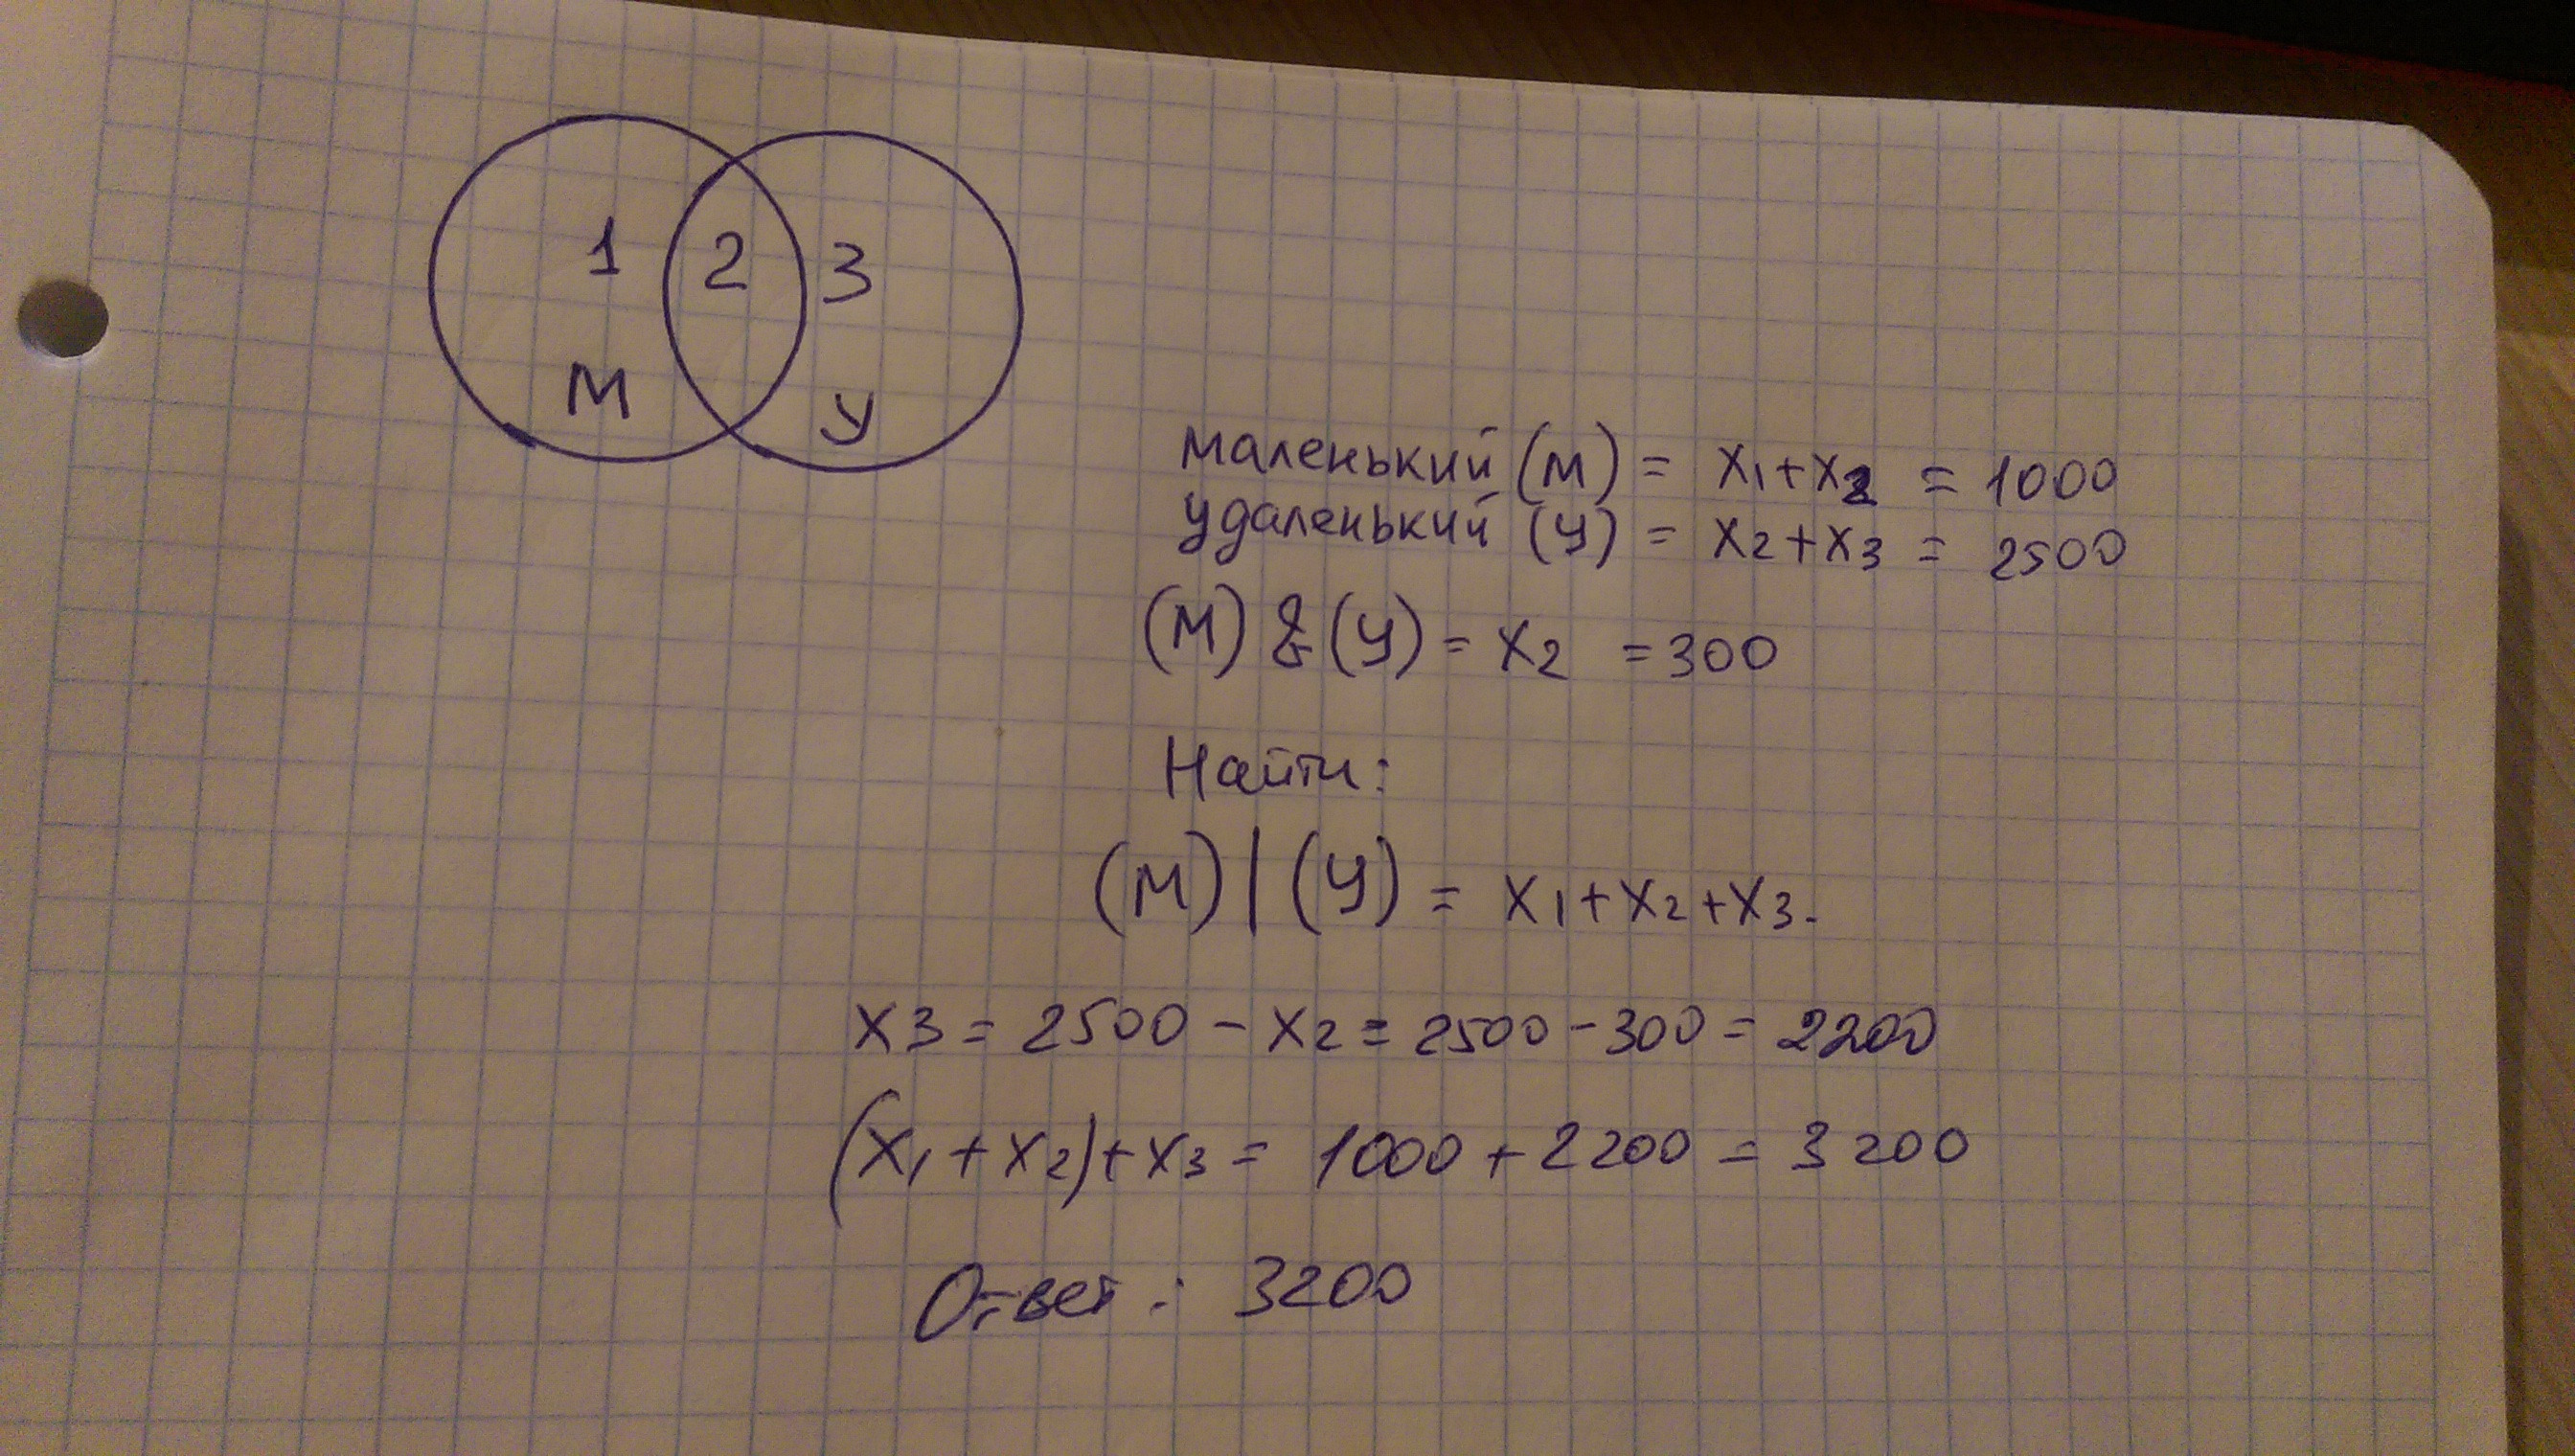 1 2 3
М У
маленький (М) = x₁+x₂ = 1000
удаленький (У) = x₂+x₃ = 2500
(М) & (У) = x₂ = 300
Найти:
(М) | (У) = x₁+x₂+x₃.
x3 = 2500 - x₂ = 2500 - 300 = 2200
(x₁ + x₂)+x₃ = 1000 + 2200 = 3200
Ответ : 3200